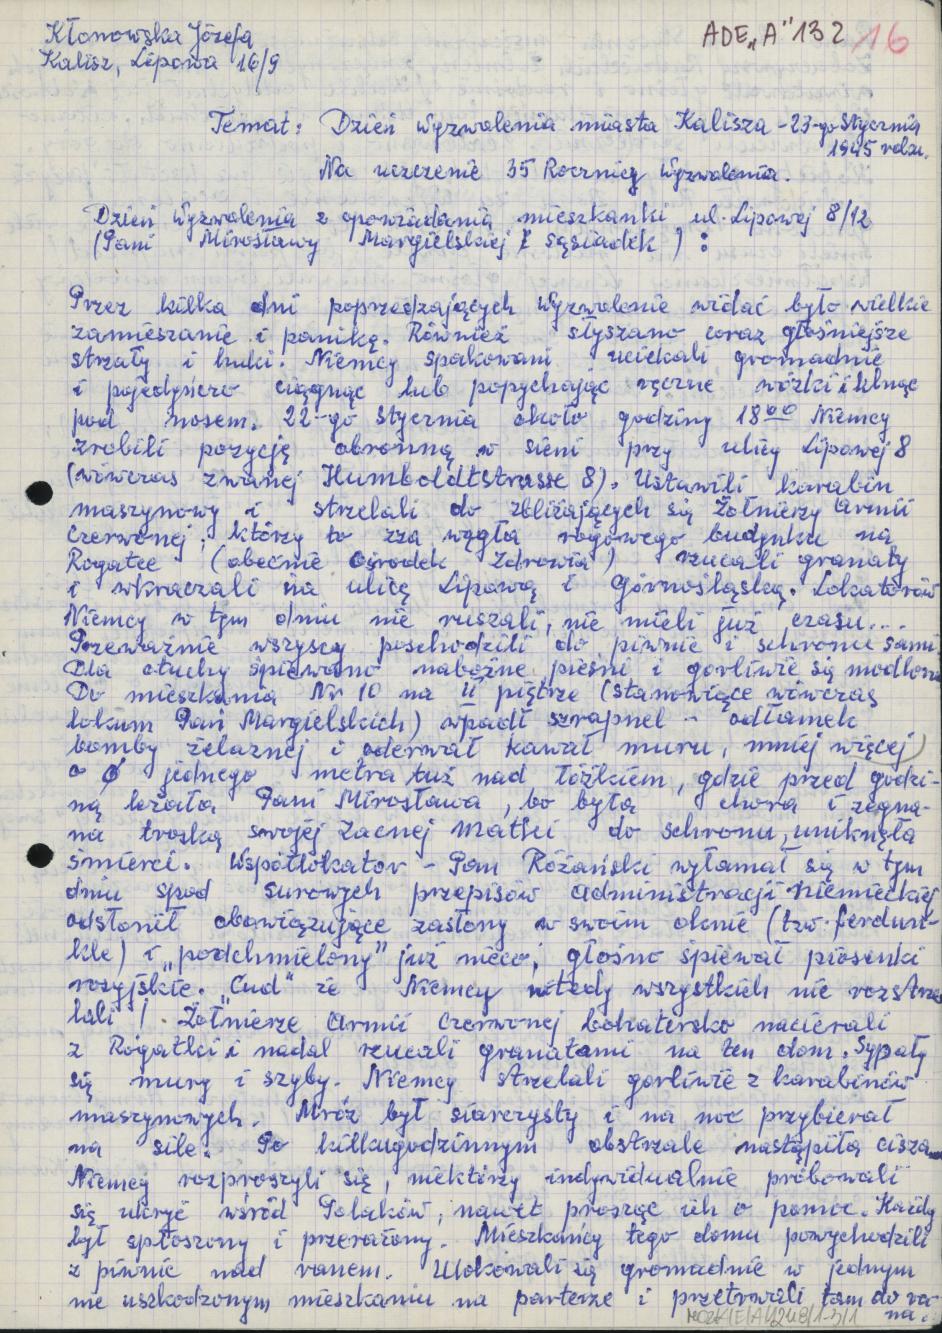 Kłonowska Józefa
Kalisz, Lipowa 16/9
ADE„A" 132
16
Temat: Dzień Wyzwolenia miasta Kalisza - 23-go Stycznia
1945 roku.
Na uczczenie 35 Rocznicy Wyzwolenia.
Dzień Wyzwolenia z opowiadania mieszkanki ul. Lipowej 8/12
(Pani Mirosławy Margielskiej i sąsiadek):
Przez kilka dni poprzedzających Wyzwolenie widać było wielkie
zamieszanie i panikę. Również słyszano coraz głośniejsze
strzały i huki. Niemcy spakowani uciekali gromadnie
i pojedyńczo ciągnąc lub popychając ręczne wózki i klnąc
pod nosem. 22-go stycznia około godziny 18⁰⁰ Niemcy
zrobili pozycję obronną w sieni przy ulicy Lipowej 8
(wówczas zwanej Humboldtstrasse 8). Ustawili karabin
maszynowy i strzelali do zbliżających się Żołnierzy Armii
Czerwonej, którzy to zza węgła rogowego budynku na
Rogatce (obecnie Ośrodek Zdrowia) rzucali granaty
i wkraczali na ulicę Lipową i Górnośląską. Lokatorów
Niemcy w tym dniu nie ruszali, nie mieli już czasu...
Przeważnie wszyscy poschodzili do piwnic i schronu sami.
Dla otuchy śpiewano nabożne pieśni i gorliwie się modlono.
Do mieszkania Nr 10 na II piętrze (stanowiące wówczas
lokum Pań Margielskich) wpadł szrapnel - odłamek
bomby żelaznej i oderwał kawał muru, mniej więcej
o ø jednego metra tuż nad łóżkiem, gdzie przed godzi-
ną leżała Pani Mirosława, bo była chora i zegna-
na troską swojej Zacnej Matki do schronu, uniknęła
śmierci. Współlokator - Pan Różański wyłamał się w tym
dniu spod surowych przepisów administracji niemieckiej
odsłonił obowiązujące zasłony w swoim oknie (tzw. ferdun-
kle) i „podchmielony" już nieco, głośno śpiewał piosenki
rosyjskie. "Cud" że Niemcy wtedy wszystkich nie rozstrze-
lali! Żołnierze Armii Czerwonej bohatersko nacierali
z Rogatki i nadal rzucali granatami na ten dom. Sypały
się mury i szyby. Niemcy strzelali gorliwie z karabinów
maszynowych. Mróz był siarczysty i na noc przybierał
na sile. Po kilkugodzinnym obstrzale nastąpiła cisza.
Niemcy rozproszyli się, niektórzy indywidualnie próbowali
się ukryć wśród Polaków, nawet prosząc ich o pomoc. Każdy
był spłoszony i przerażony. Mieszkańcy tego domu powychodzili
z piwnic nad ranem. Ulokowali się gromadnie w jednym
nie uszkodzonym mieszkaniu na parterze i przetrwali tam do ra-
na.